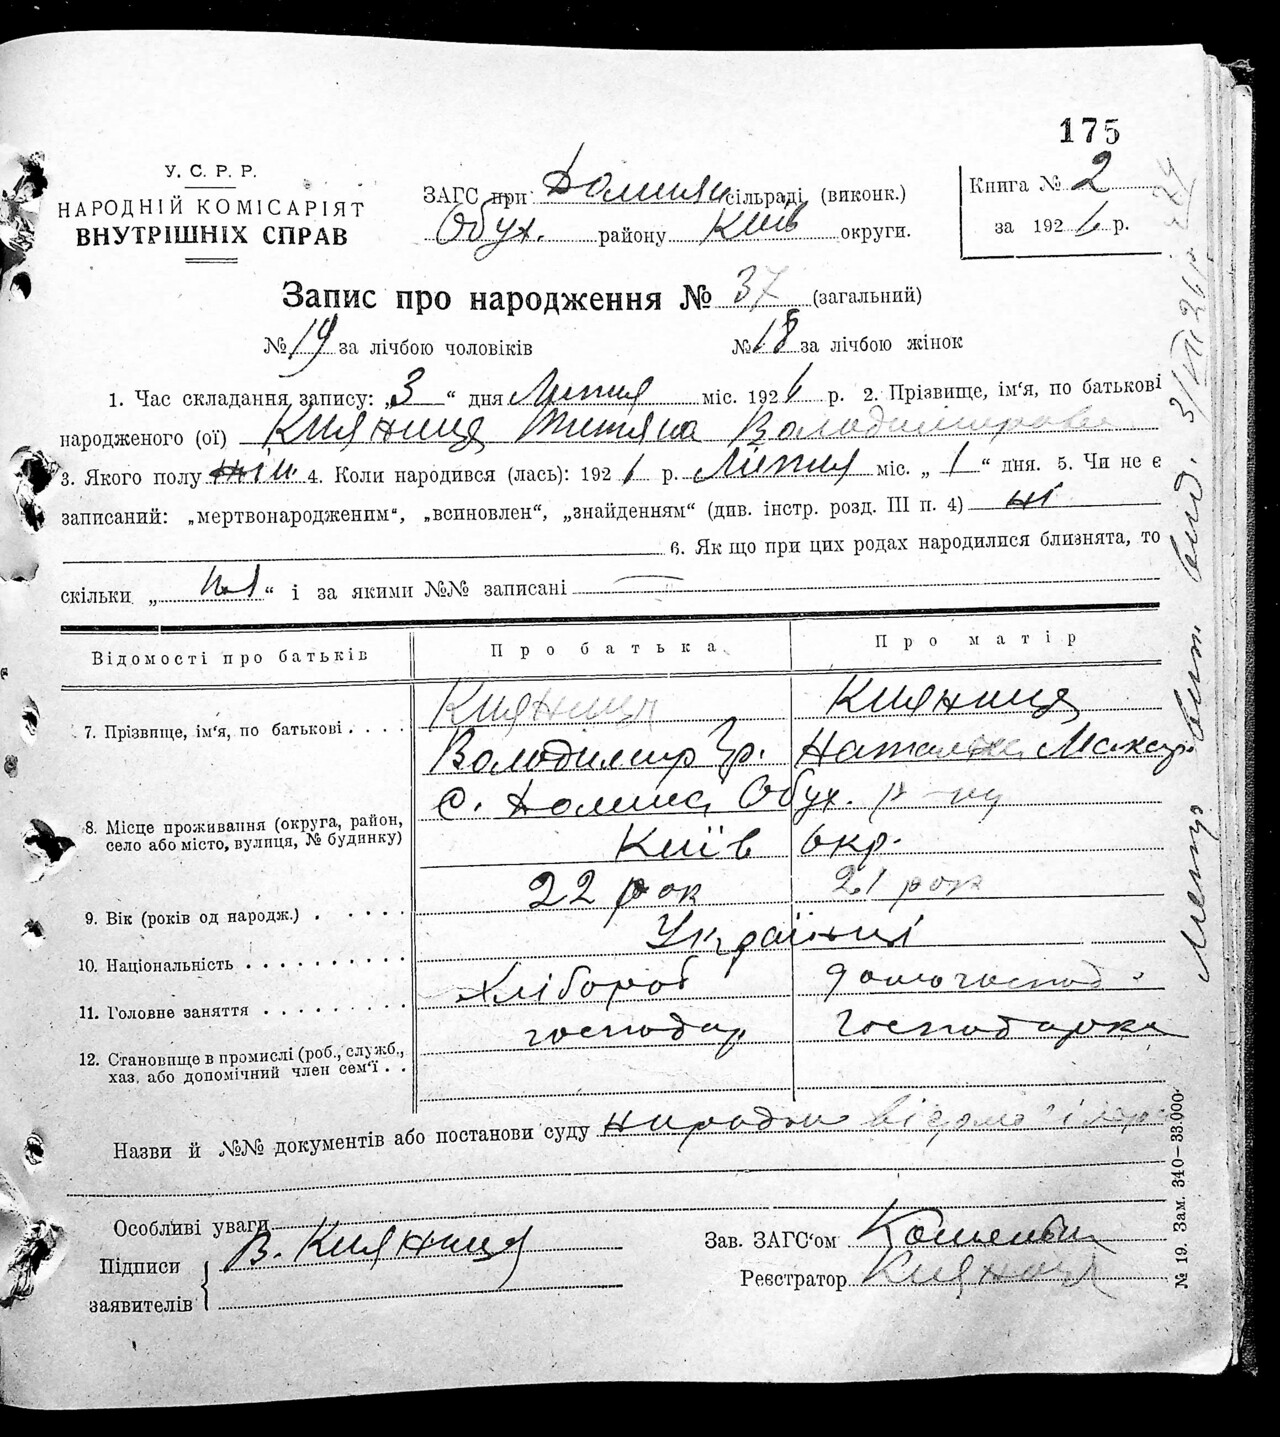 175
У. С. Р. Р.
НАРОДНІЙ КОМІСАРІЯТ
ВНУТРІШНІХ СПРАВ
ЗАГС при сільраді (виконк.)
Обух. району Київ округи.
Книга № 2
за 1926 р.
Запис про народження № 37 (загальний)
№ 19 за лічбою чоловіків № 18 за лічбою жінок
1. Час складання запису: „3“ дня Липня міс. 1926 р. 2. Прізвище, ім‘я, по батькові
народженого (ої) Кияниця Тетяна Володимирова
3. Якого полу жін 4. Коли народився (лась): 1926 р. Липня міс. „1“ дня. 5. Чи не є
записаний: „мертвонародженим“, „всиновлен“, „знайденням“ (див. інстр. розд. III п. 4) ні
6. Як що при цих родах народилися близнята, то
скільки „ “ і за якими №№ записані
Відомості про батьків Про батька Про матір
7. Прізвище, ім‘я, по батькові . . . . Кияниця Кияниця
Володимир Гр. Наталка
8. Місце проживання (округа, район, село або місто, вулиця, № будинку) с. Долина Обух. р-ну
Київ окр.
9. Вік (років од народж.) . . . . . 22 рок 21 рок
10. Національність . . . . . . . . . . Українці
11. Головне заняття . . . . . . . . Хлібороб домогоспод.
12. Становище в промислі (роб., служб., хаз. або допомічний член сем‘ї . . господар господарка
Назви й №№ документів або постанови суду
Особливі уваги
Підписи заявителів В. Кияниця
Зав. ЗАГС‘ом
Реєстратор Кияниця
№ 19. Зам. 340—33.000.
Метр. вит. вид. 3/VII 26 р.